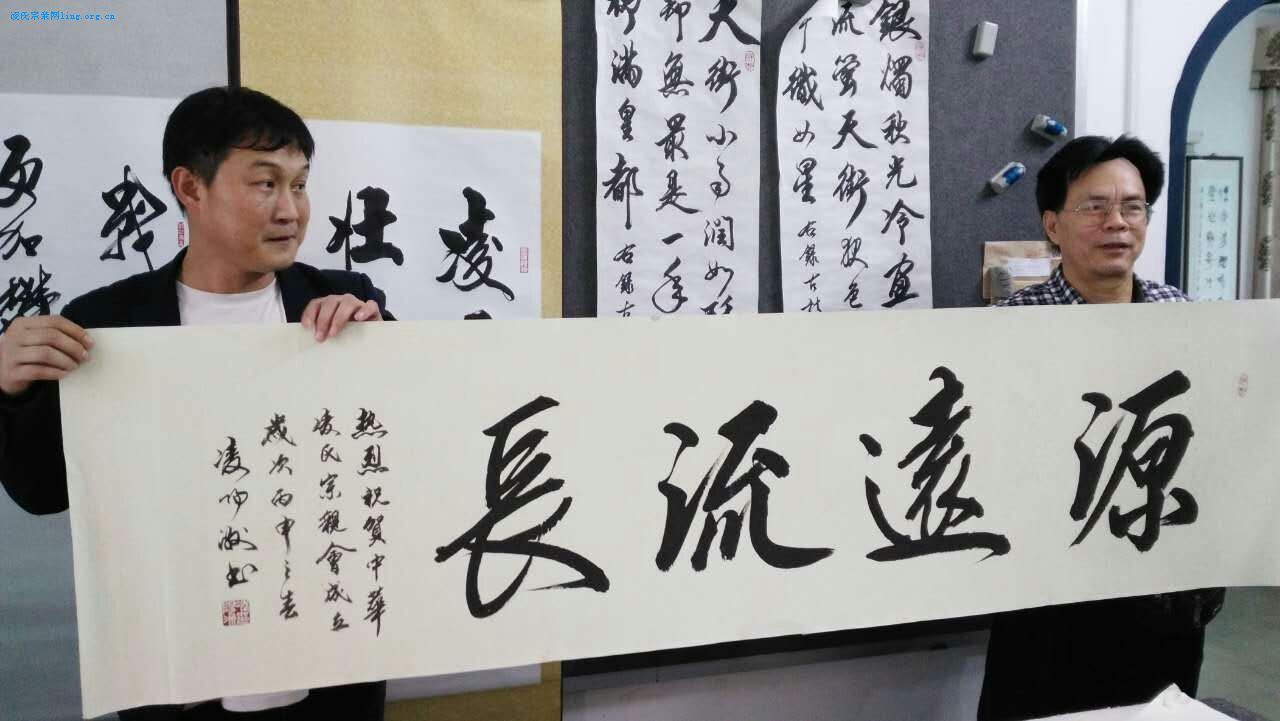 凌氏宗亲网ling.org.cn
銀燭秋光冷画
流螢天街夜色
織女星
右録古
天街小雨潤如酥
却無最是一年
柳滿皇都
右録古
凌
壯
更加
源遠流長
熱烈祝賀中華
凌氏宗親會成立
歲次丙申之春
凌
書